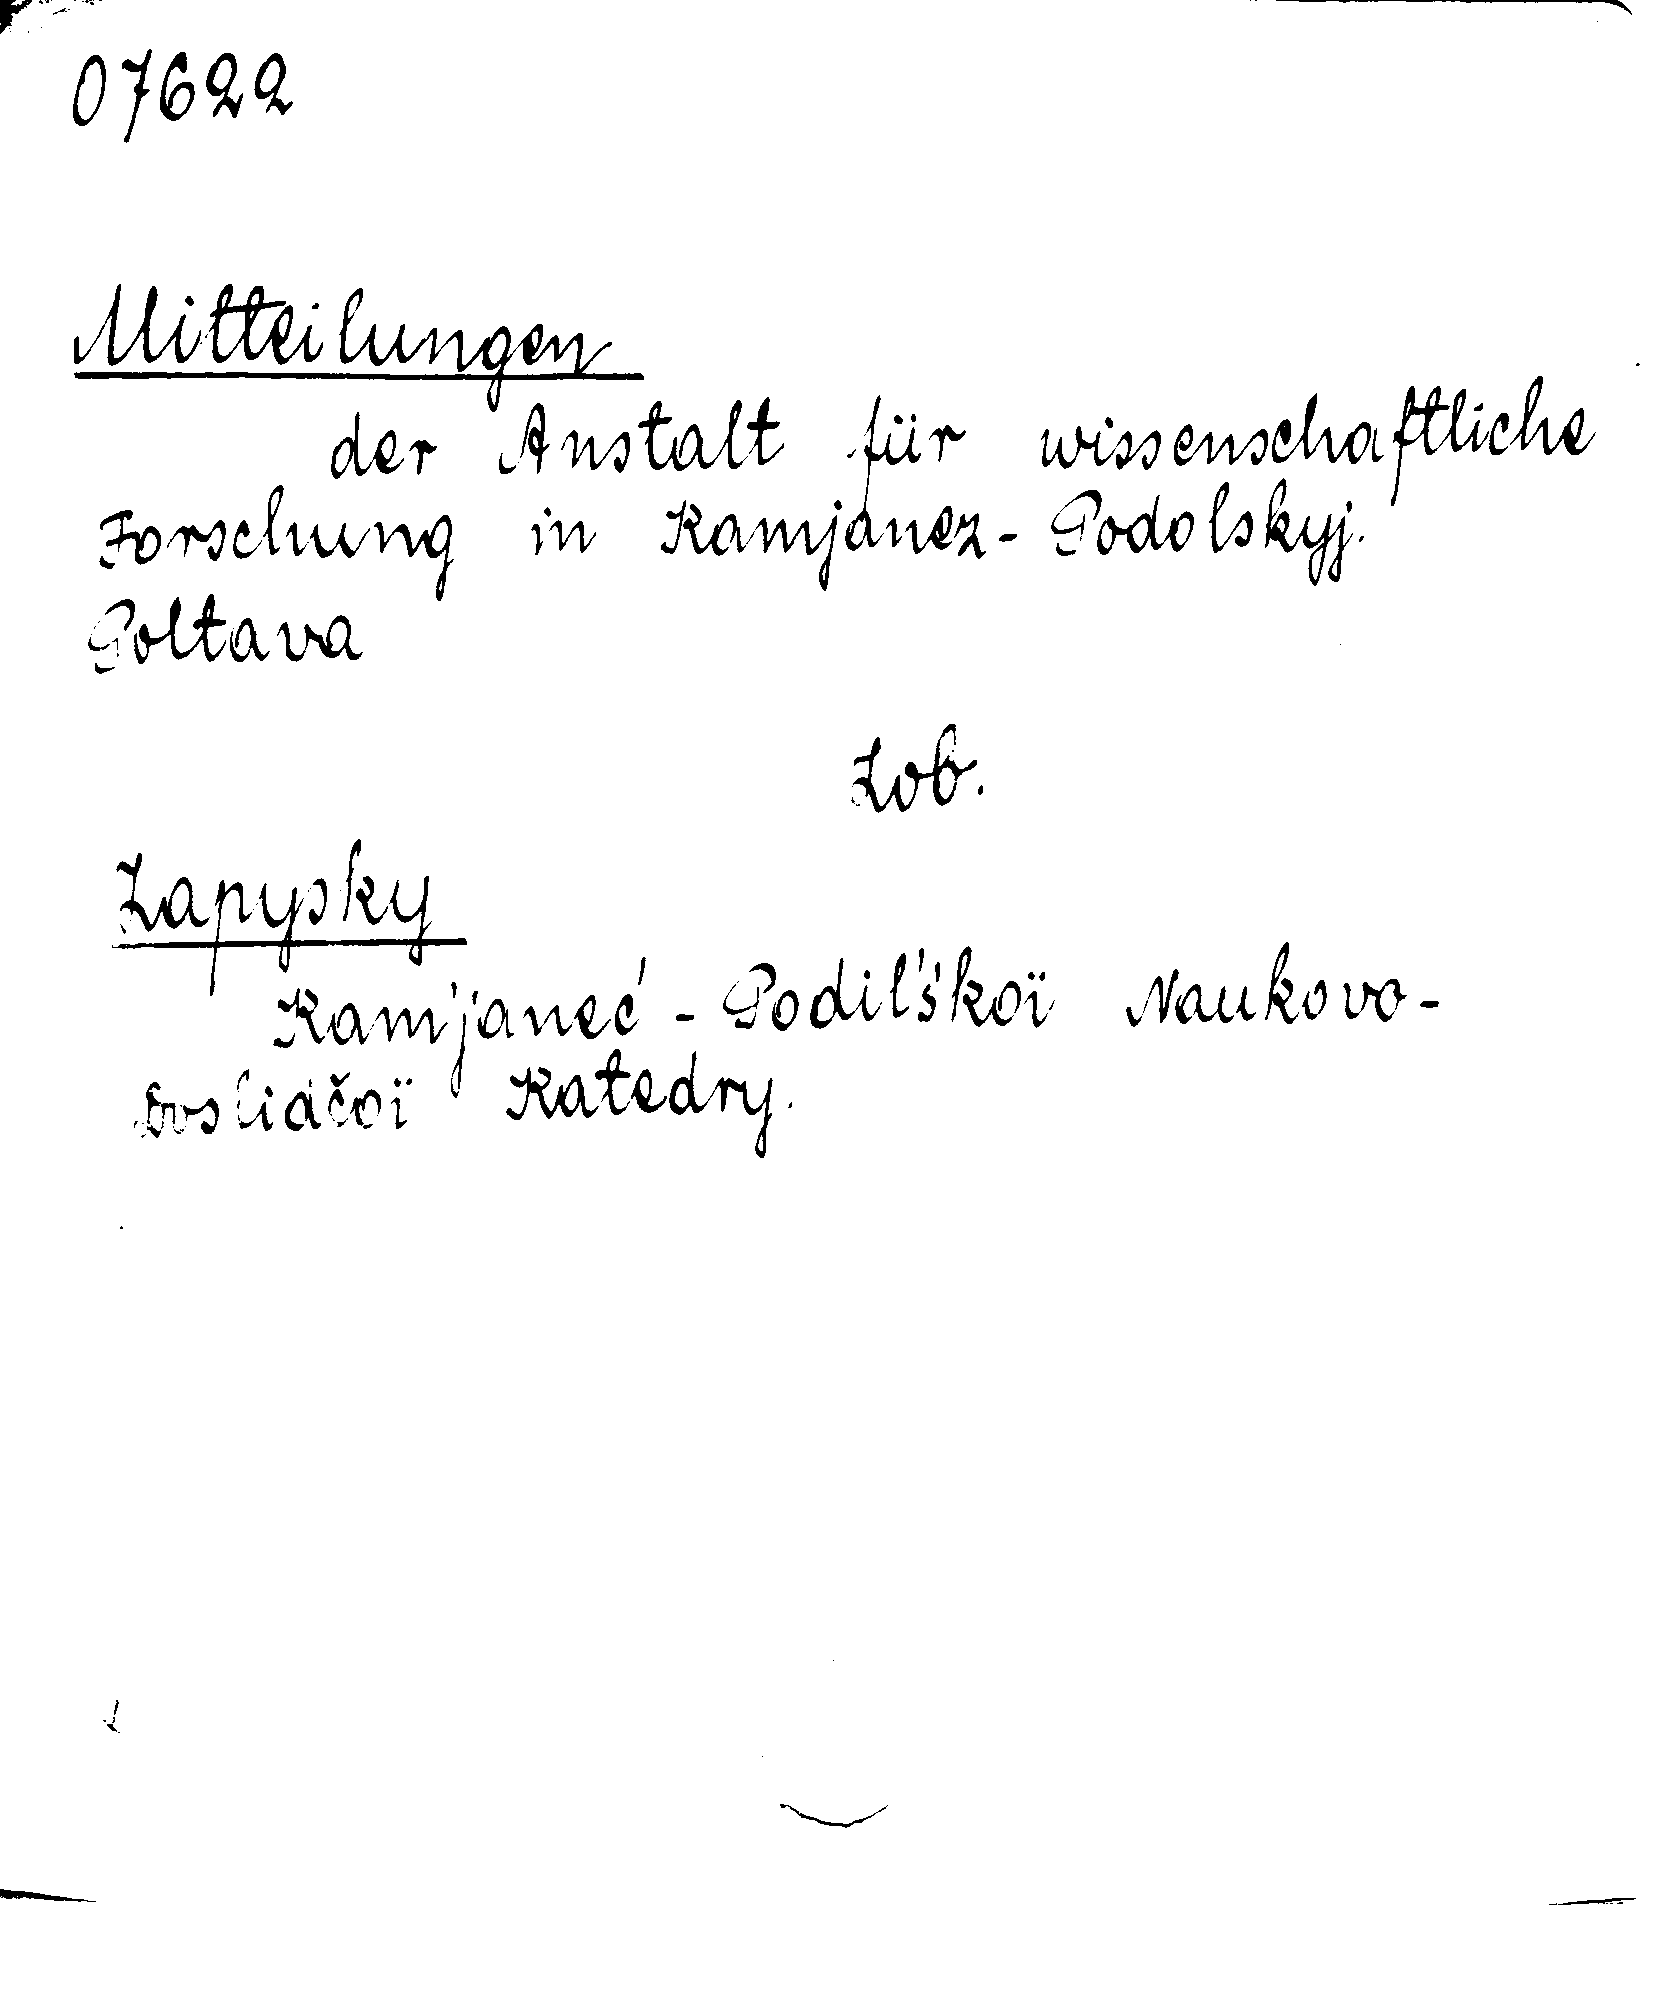 07622
Mitteilungen
der Anstalt für wissenschaftliche
Forschung in Kamjanez-Podolskyj.
Poltava
Zob.
Zapysky
Kam'janeć - Podil'śkoï Naukovo-
Katedry.